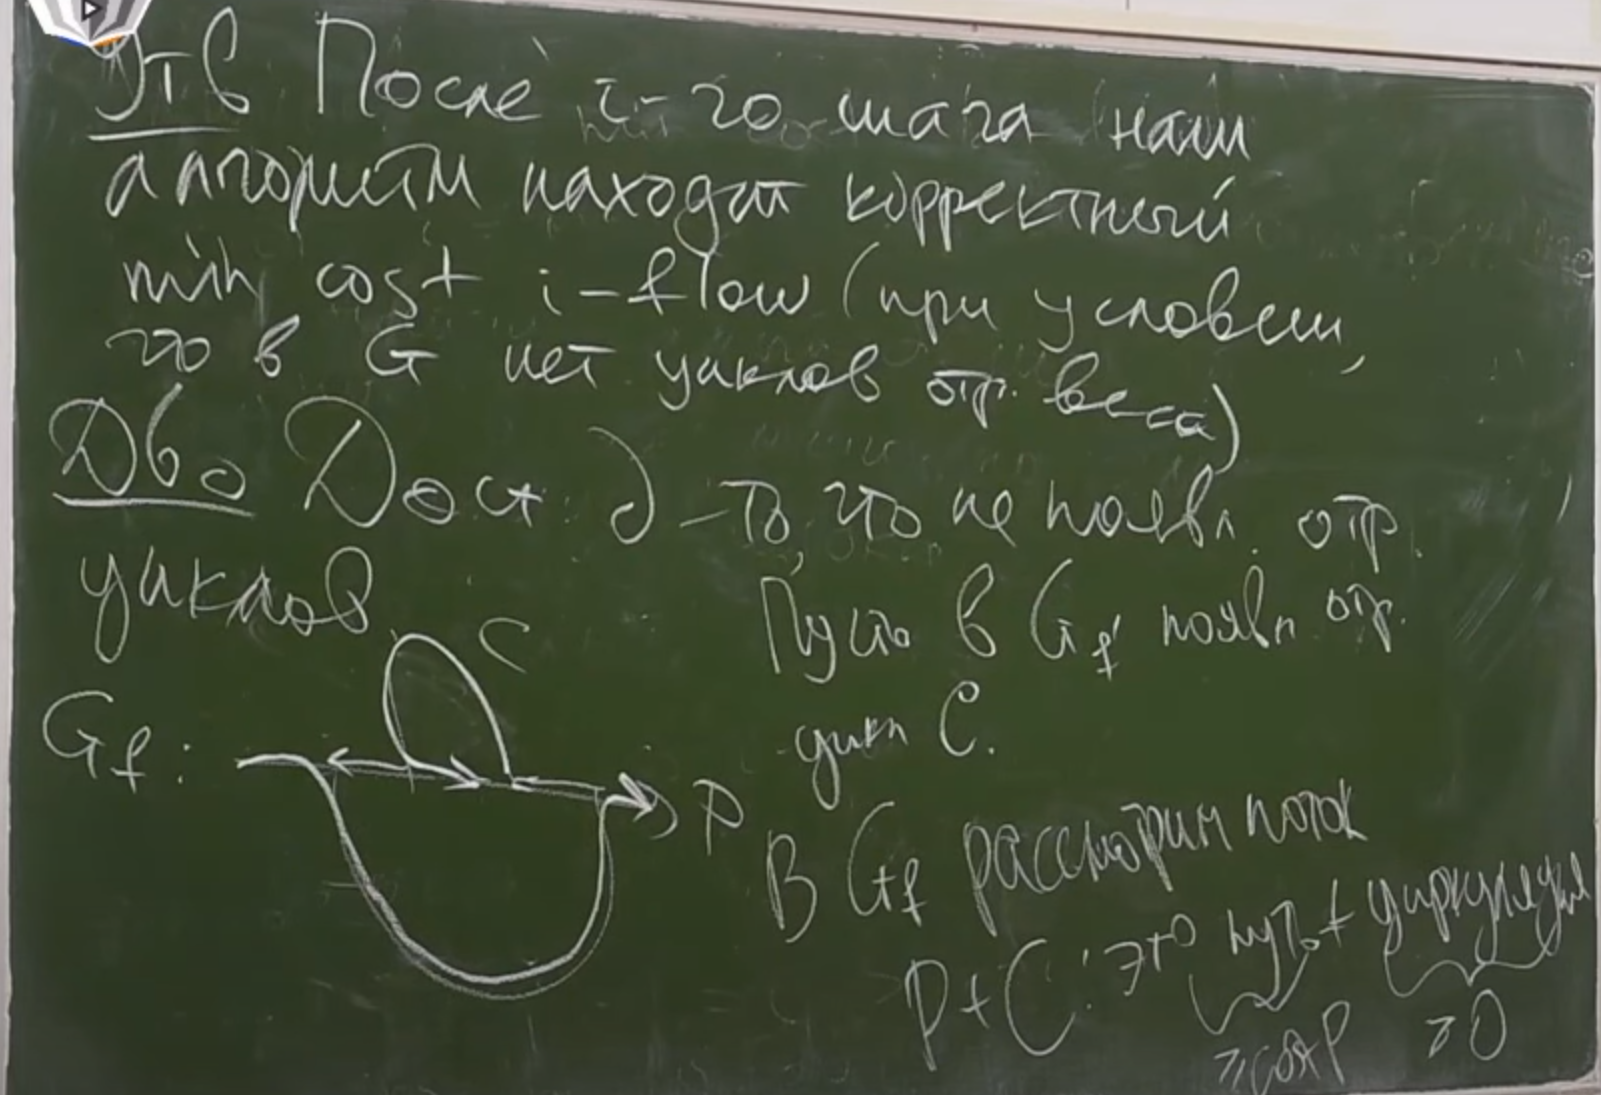 Утв После i-го шага наш
алгоритм находит корректный
min cost i-flow (при условии,
что в G нет циклов отр. веса)
Дво Дост. д-ть, что не появл. отр.
циклов.
C
Пусть в Gf' появл отр.
цикл C.
Gf:
P
В Gf рассмотрим поток
P+C: это путь + циркуляция
≥cost P ≥0